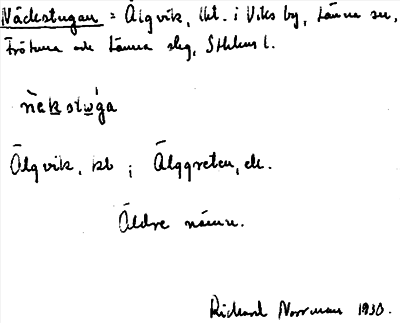 Näckstugan = Älgvik, lht. i Viks by, Länna sn,
Frötuna och Länna slg, Sthlms l.
näkstwga
Älgvik, kb ; Älggreten, ek.
Äldre namn.
Richard Norrman 1930.